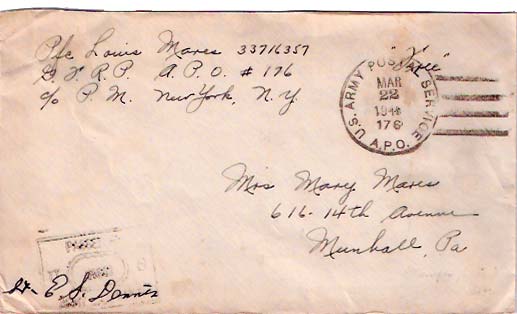 Pfc Louis Mares 33716357
G.F.R.P. A.P.O. # 176
c/o P.M. New York, N.Y.
"Free"
U.S. ARMY POSTAL SERVICE
MAR
22
176
A.P.O.
Mrs Mary Mares
616-14th Avenue
Munhall, Pa
E S. Dennis